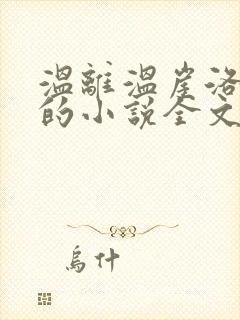 溫離溫崖洛
的小説全文
烏什